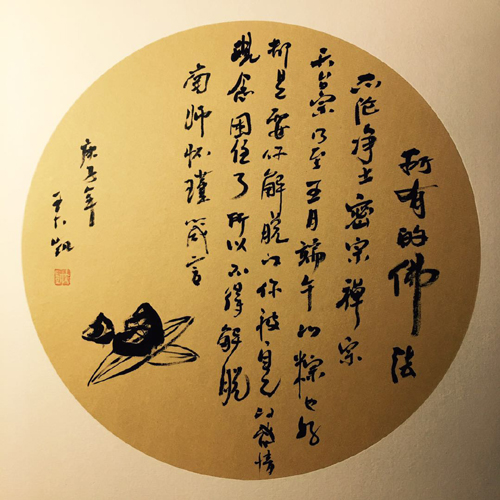 所有的佛法
不论净土密宗禅宗
天台宗乃至五月端午的粽也好
都是要你解脱你被自己的感情
观念困住了所以不得解脱
南师怀瑾箴言
庚子年